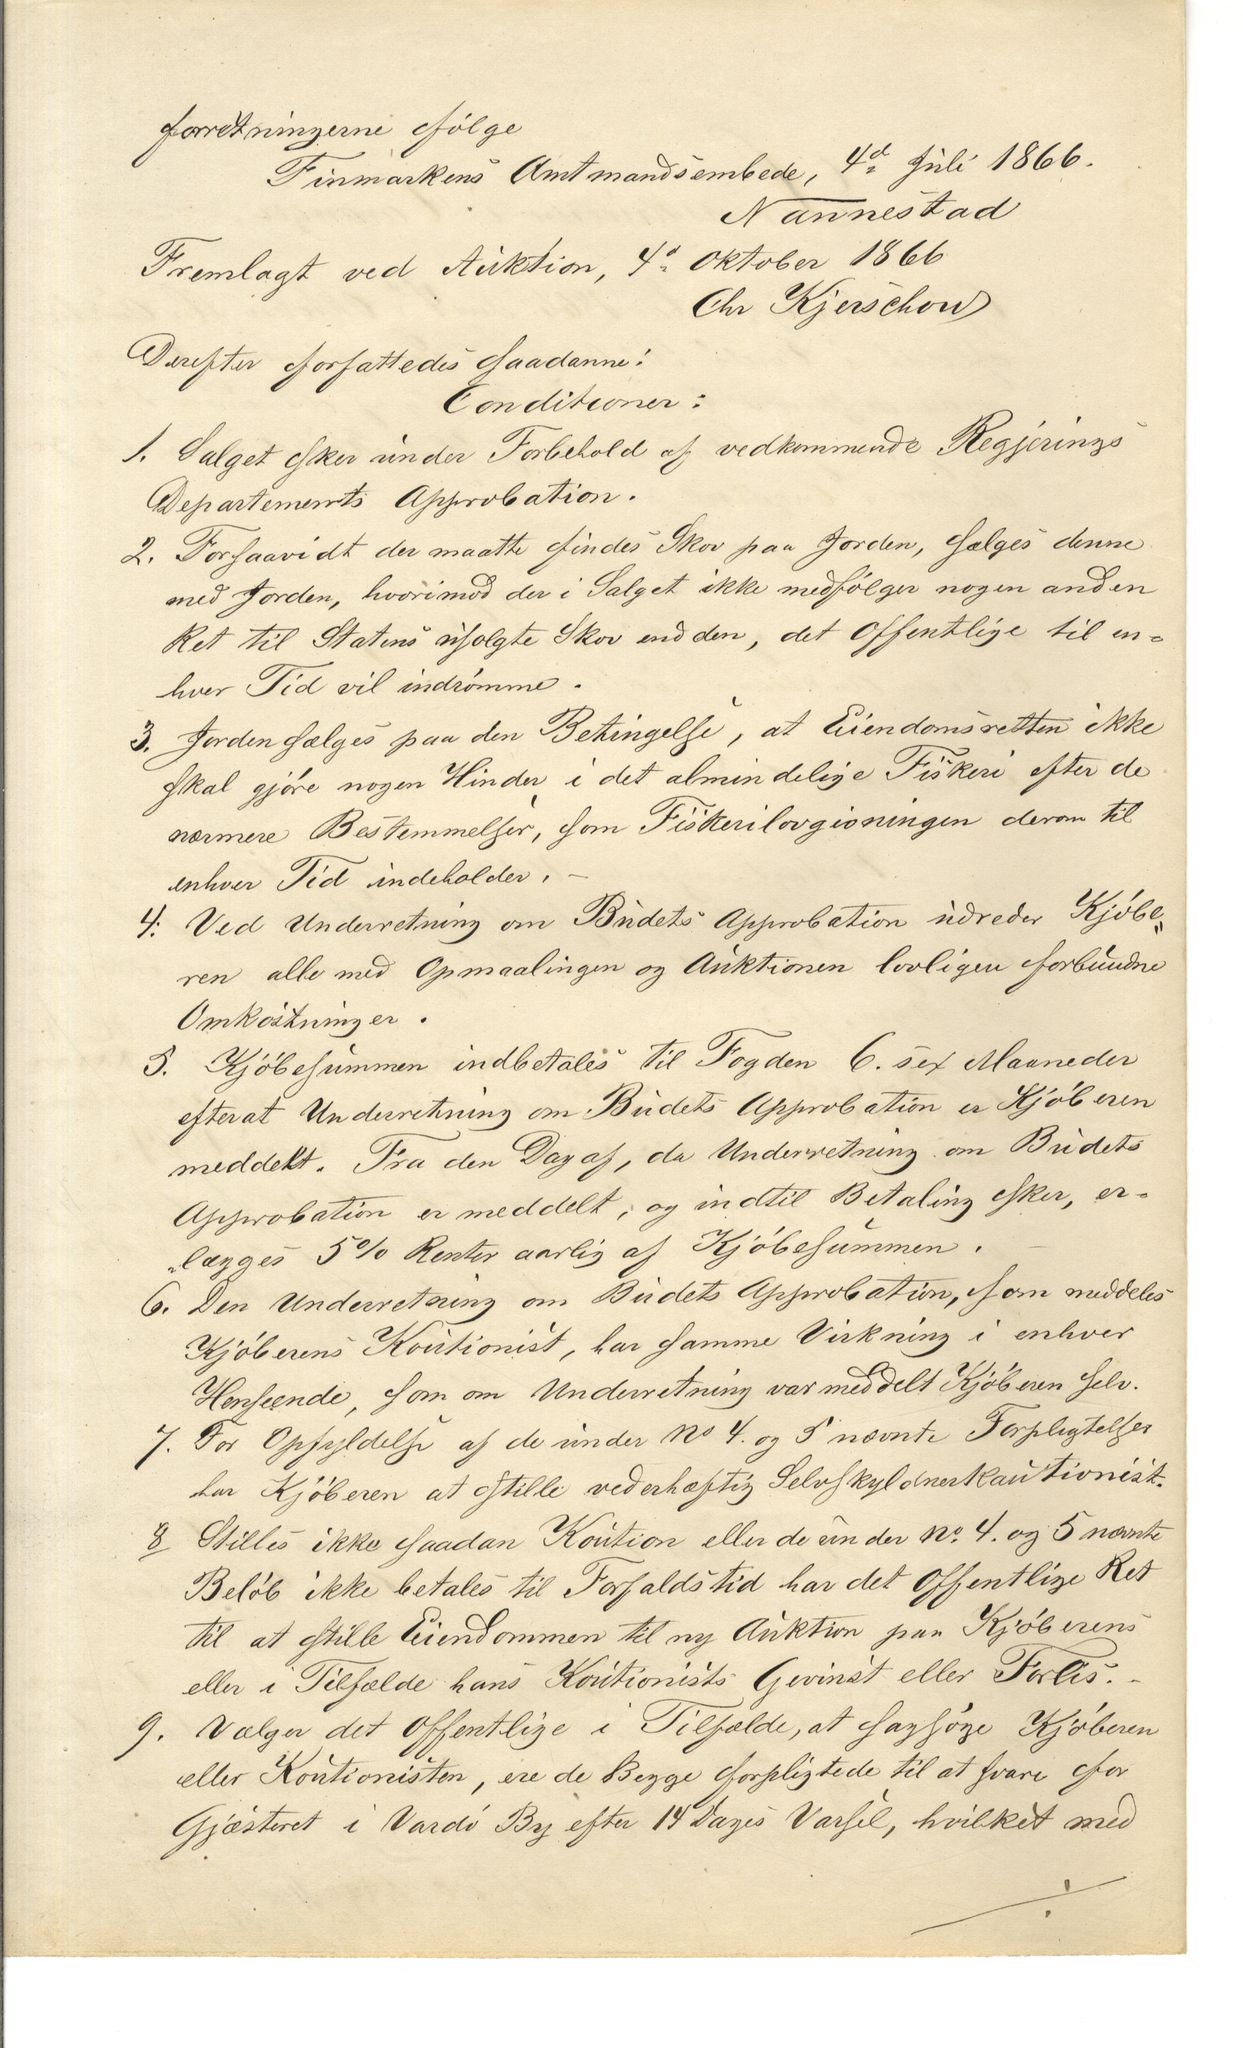 forretningerne følge
Finmarkens Amtmandsembede, 4d Juli 1866.
Nannestad
Fremlagt ved Auktion, 4d Oktober 1866
Chr Kjerschow
Derefter forfattedes saadanne:
Conditioner:
1. Salget sker under Forbehold af vedkommende Regjerings
Departements Approbation.
2. Forsaavidt der maatte findes Skov paa Jorden, sælges denne
med Jorden, hvorimod der i Salget ikke medfølger nogen anden
Ret til Statens usolgte Skov end den, det Offentlige til en-
hver Tid vil indrømme.
3. Jorden sælges paa den Betingelse, at Eiendomsretten ikke
skal gjøre nogen Hinder i det almindelige Fiskeri efter de
nærmere Bestemmelser, som Fiskerilovgivningen derom til
enhver Tid indeholder. –
4. Ved Underretning om Budets Approbation udreder Kjøbe-
ren alle med Opmaalingen og Auktionen lovligen forbundne
Omkostninger.
5. Kjøbesummen indbetales til Fogden 6. sex Maaneder
efterat Underretning om Budets Approbation er Kjøberen
meddelt. Fra den Dag af, da Underretning om Budets
Approbation er meddelt, og indtil Betaling sker, er-
lægges 5% Renter aarlig af Kjøbesummen. –
6. Den Underretning om Budets Approbation, som meddeles
Kjøberens Kautionist, har samme Virkning i enhver
Henseende, som om Underretning var meddelt Kjøberen selv.
7. For Opfyldelse af de under No 4. og 5 nævnte Forpligtelser
har Kjøberen at stille vederhæftig Selvskyldnerkautionist.
8 Stilles ikke saadan Kaution eller de under No. 4. og 5 nævnte
Beløb ikke betales til Forfaldstid har det Offentlige Ret
til at stille Eiendommen til ny Auktion paa Kjøberens
eller i Tilfælde hans Kautionists Gevinst eller Forlis. –
9. Vælger det Offentlige i Tilfælde, at sagsøge Kjøberen
eller Kautionisten, ere de Begge forpligtede til at svare for
Gjæsteret i Vardø By efter 14 Dages Varsel, hvilket med